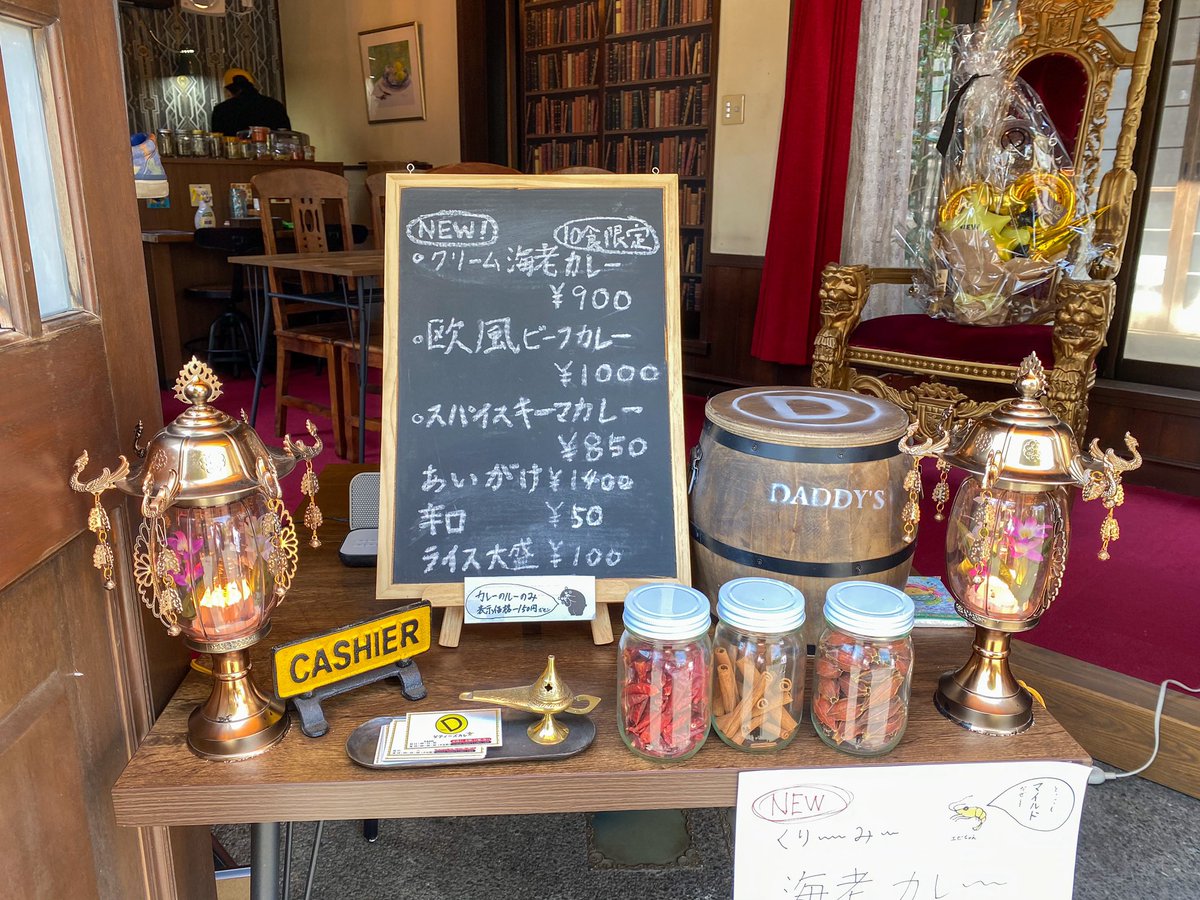 NEW!
10食限定
クリーム海老カレー
¥900
欧風ビーフカレー
¥1000
スパイスキーマカレー
¥850
あいがけ ¥1400
辛口 ¥50
ライス大盛 ¥100
カレーのルーのみ
表示価格-150円
CASHIER
D
D
DADDY'S
NEW
くりーみー
海老カレー
とっても
マイルド
だぜー
エビちゃん